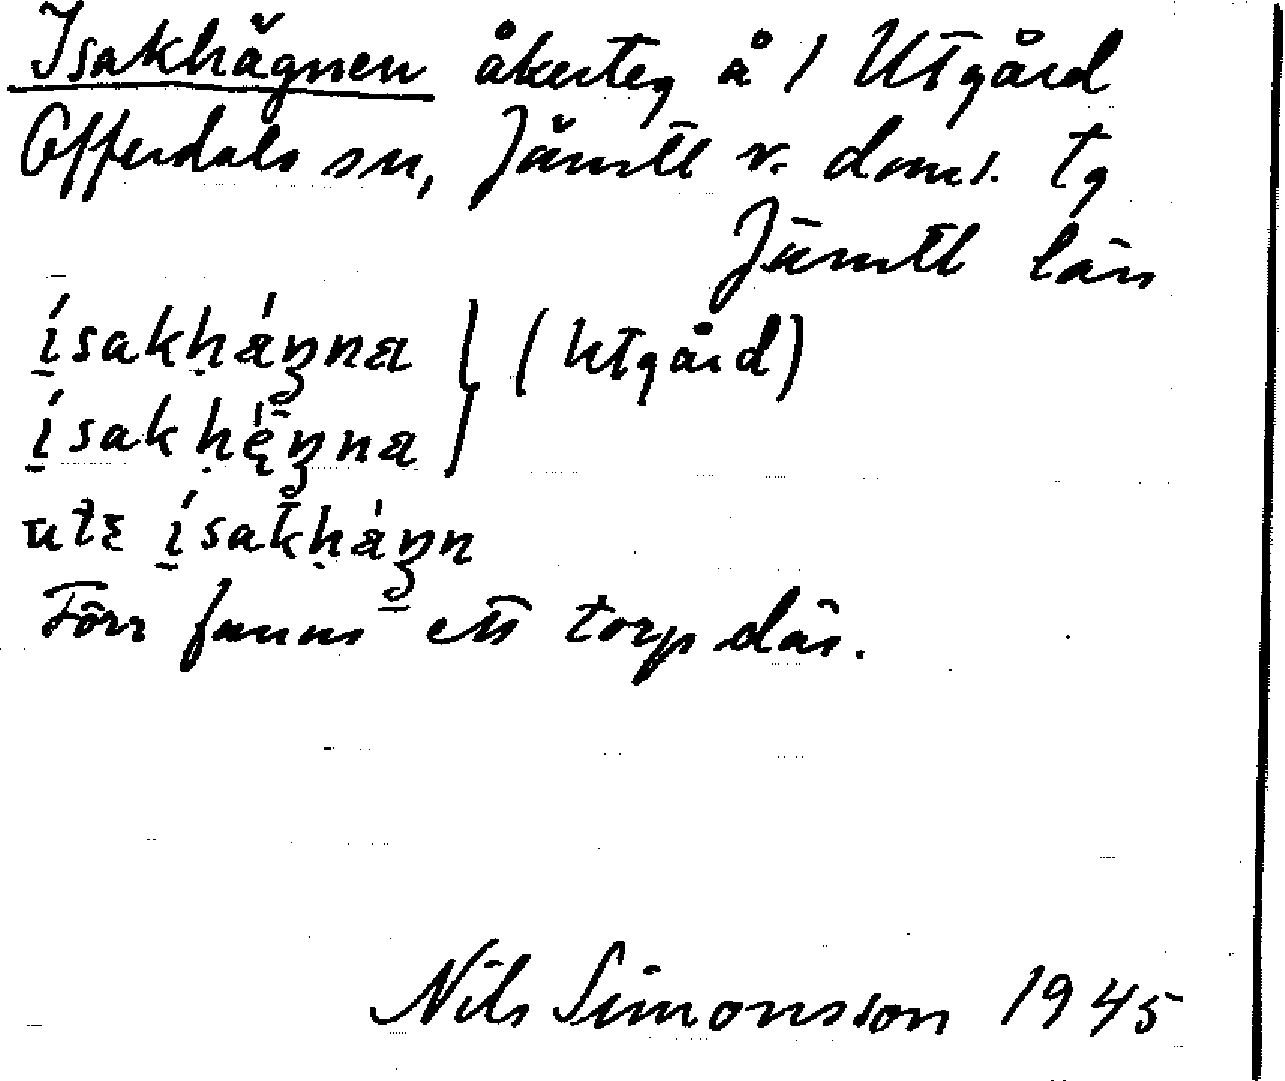 Isakhägnen åkerteg å 1 Utgård
Offerdals sn, Jämtl v. doms. tg
Jämtl län
í̱sakḥáŋna } (Utgård)
í̱sakḥę́ŋna
ute í̱sakḥáŋn
Förr fanns ett torp där.
Nils Simonsson 1945